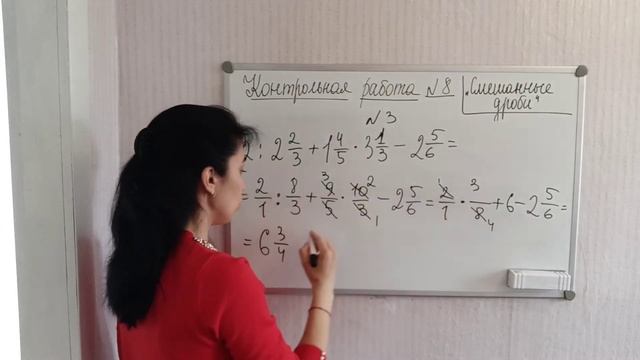 Контрольная работа №8 "Смешанные дроби"
№3
2 : 2 2/3 + 1 4/5 · 3 1/3 − 2 5/6 =
= 2/1 : 8/3 + 9/5 · 10/3 − 2 5/6 = 2/1 · 3/8 + 6 − 2 5/6 =
= 6 3/4